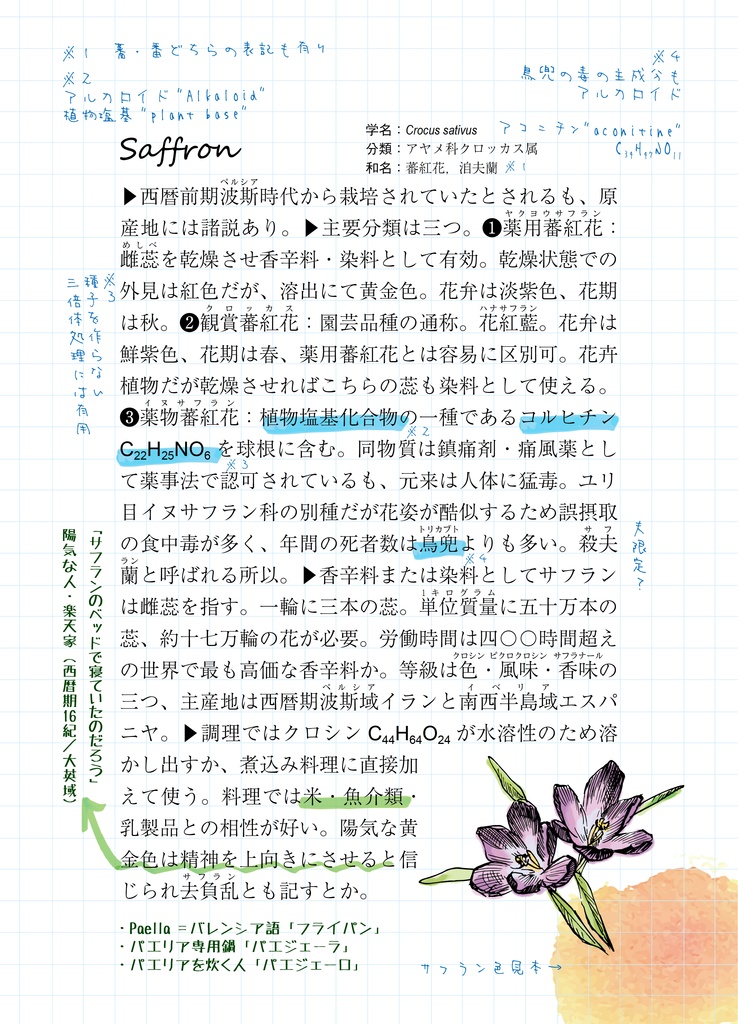 ※1 蕃・番どちらの表記も有り
※2
アルカロイド"Alkaloid"
植物塩基"plant base"
※4
鳥兜の毒の主成分も
アルカロイド
アコニチン"aconitine"
C₃₄H₄₇NO₁₁
Saffron
学名：Crocus sativus
分類：アヤメ科クロッカス属
和名：蕃紅花．泊夫蘭 ※1
ペルシア
▶西暦前期波斯時代から栽培されていたとされるも、原
産地には諸説あり。▶主要分類は三つ。❶薬用蕃紅花：
ヤクヨウサフラン
めしべ
雌蕊を乾燥させ香辛料・染料として有効。乾燥状態での
外見は紅色だが、溶出にて黄金色。花弁は淡紫色、花期
クロッカス
ハナサフラン
は秋。❷観賞蕃紅花：園芸品種の通称。花紅藍。花弁は
鮮紫色、花期は春、薬用蕃紅花とは容易に区別可。花卉
植物だが乾燥させればこちらの蕊も染料として使える。
イヌサフラン
❸薬物蕃紅花：植物塩基化合物の一種であるコルヒチン
※2
C₂₂H₂₅NO₆を球根に含む。同物質は鎮痛剤・痛風薬とし
※3
て薬事法で認可されているも、元来は人体に猛毒。ユリ
目イヌサフラン科の別種だが花姿が酷似するため誤摂取
トリカブト
サフ
の食中毒が多く、年間の死者数は鳥兜よりも多い。殺夫
ラン
※4
蘭と呼ばれる所以。▶香辛料または染料としてサフラン
1キログラム
は雌蕊を指す。一輪に三本の蕊。単位質量に五十万本の
蕊、約十七万輪の花が必要。労働時間は四〇〇時間超え
クロシン ピクロクロシン サフラナール
の世界で最も高価な香辛料か。等級は色・風味・香味の
ペルシア
イベリア
三つ、主産地は西暦期波斯域イランと南西半島域エスパ
ニヤ。▶調理ではクロシン C₄₄H₆₄O₂₄ が水溶性のため溶
かし出すか、煮込み料理に直接加
えて使う。料理では米・魚介類・
乳製品との相性が好い。陽気な黄
金色は精神を上向きにさせると信
サフラン
じられ去負乱とも記すとか。
※3
種子を作らない
三倍体処理には有用
夫限定？
「サフランのベッドで寝ていたのだろう」
陽気な人・楽天家（西暦期16紀／大英域）
・Paella ＝バレンシア語「フライパン」
・パエリア専用鍋「パエジェーラ」
・パエリアを炊く人「パエジェーロ」
サフラン色見本→